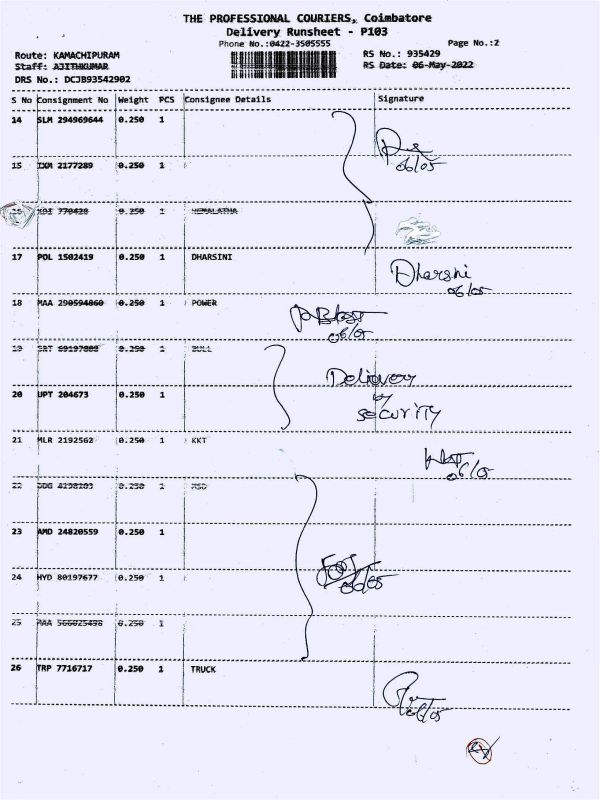 THE PROFESSIONAL COURIERS, Coimbatore
Delivery Runsheet - P103
Phone No.:0422-3505555
Page No.:2
Route: KAMACHIPURAM
RS No.: 935429
Staff: AJITHKUMAR
RS Date: 06-May-2022
DRS No.: DCJB93542902
S No Consignment No Weight PCS Consignee Details Signature
14 SLM 294969644 0.250 1
06/05
15 IXM 2177289 0.250 1
770420 0.250 1 HEMALATHA
17 POL 1502419 0.250 1 DHARSINI
Dharshi
06/05
18 MAA 290594860 0.250 1 POWER
06/05
19 0.250 1 BULL
Delivery
20 UPT 204673 0.250 1
by
security
21 MLR 2192562 0.250 1 KKT
06/05
22 0.250 1
23 AMD 24820559 0.250 1
24 HYD 80197677 0.250 1
06/05
25 MAA 0.250 1
26 TRP 7716717 0.250 1 TRUCK
06/05